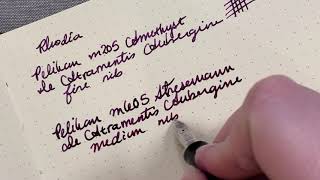 Rhodia
Pelikan m205 Amethyst
de Atramentis Aubergine
fine nib
Pelikan m605 Stresemann
de Atramentis Aubergine
medium nib